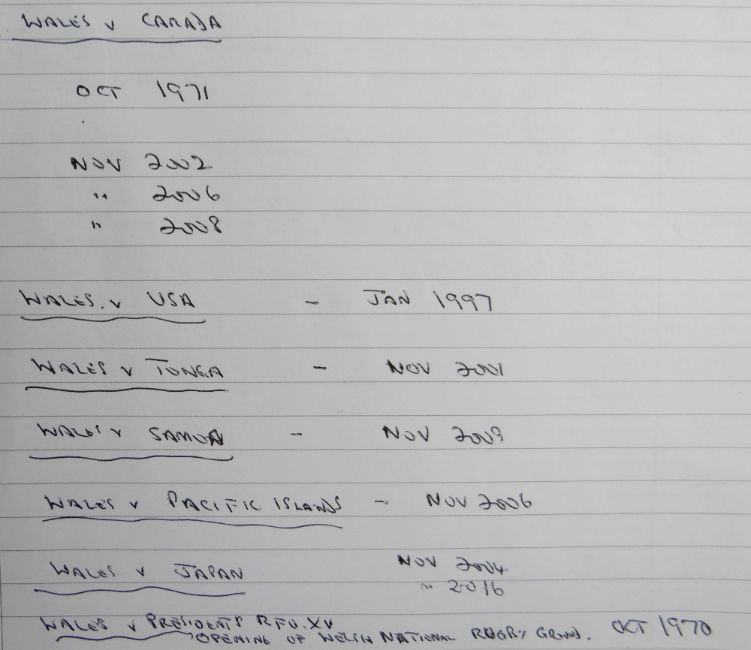 WALES v CANADA
OCT 1971
NOV 2002
" 2006
" 2008
WALES v USA - JAN 1997
WALES v TONGA - NOV 2001
WALES v SAMOA - NOV 2009
WALES v PACIFIC ISLANDS - NOV 2006
WALES v JAPAN NOV 2004
" 2016
WALES v PRESIDENTS RFU.XV
OPENING OF WELSH NATIONAL RUGBY GRND. OCT 1970